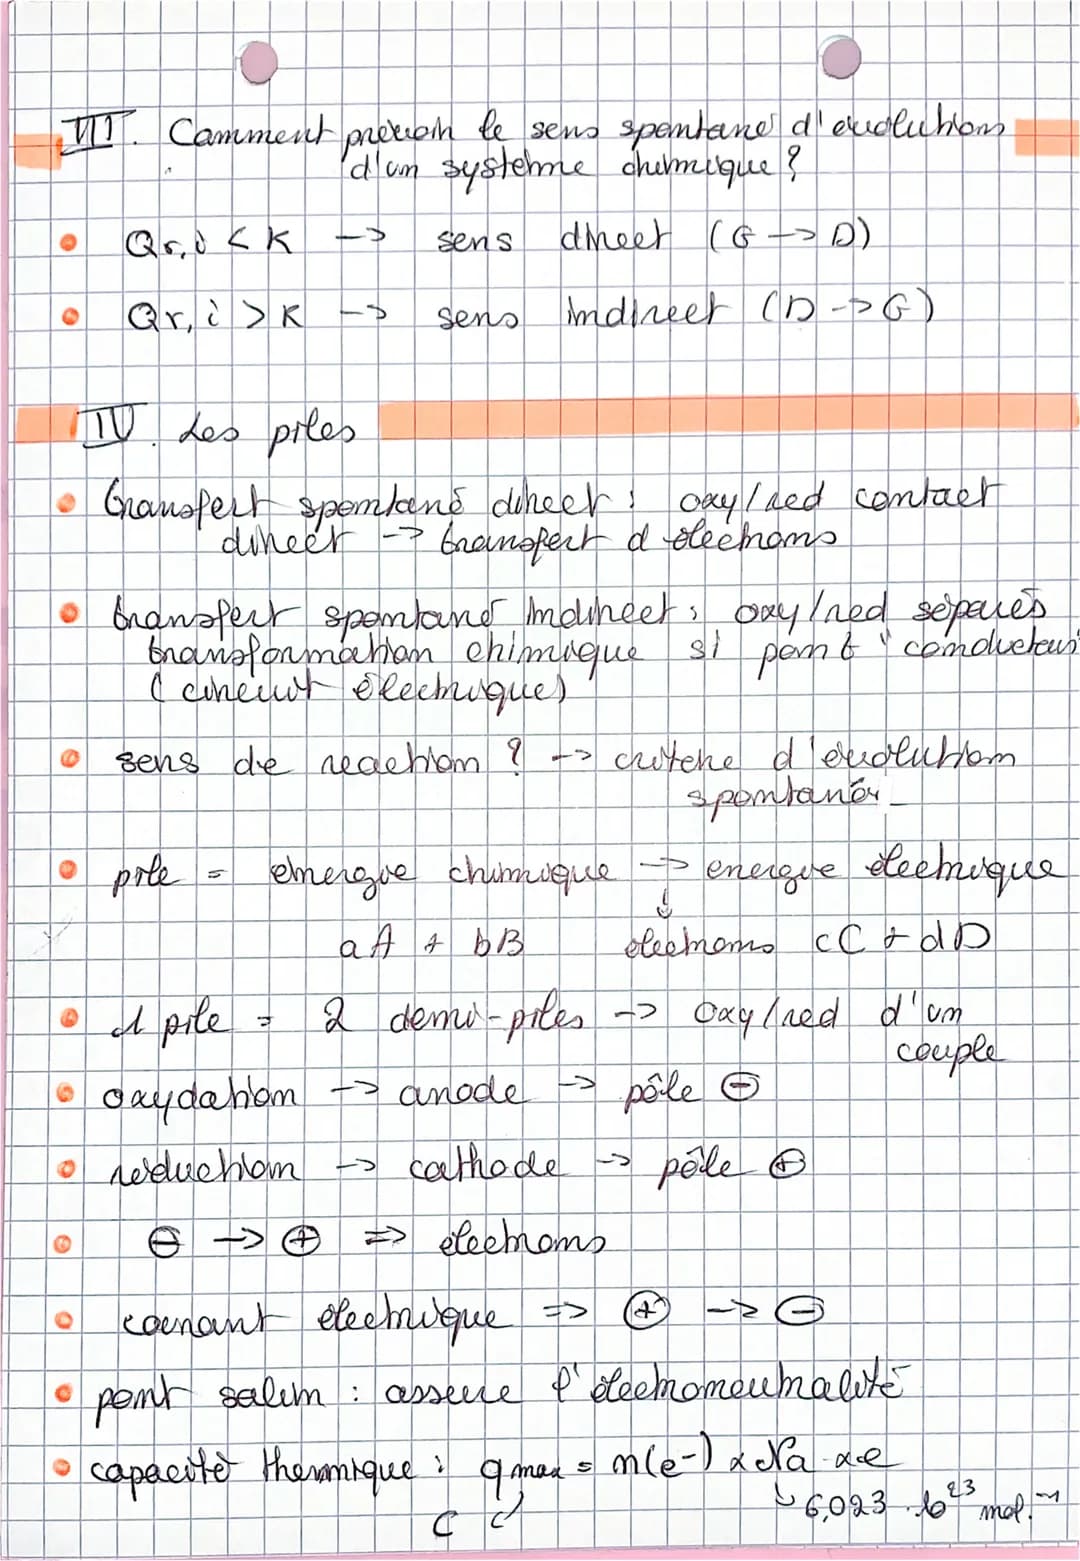 III. Comment prévoir le sens spontané d'évolutions
d'un système chimique ?
Qr,i < K --> sens direct (G -> D)
Qr, i > K --> sens indirect (D -> G)
IV. Les piles
Transfert spontané direct : oxy/red contact
direct -> transfert d électrons
transfert spontané indirect : oxy/red séparés
transformation chimique si pont conducteur
(circuit électrique)
sens de reaction ? --> critère d'évolution
spontanée
pile = énergie chimique -> energie électrique
↓
aA + bB électrons cC + dD
1 pile = 2 demi-piles -> oxy/red d'un
couple
oxydation -> anode -> pôle ⊖
réduction -> cathode -> pôle ⊕
⊖ -> ⊕ => électrons
courant électrique => ⊕ -> ⊖
pont salin : assure l'électroneutralité
capacité thermique : q max = n(e-) x Na x e
C ↙ ↳ 6,023 . 10²³ mol.⁻¹